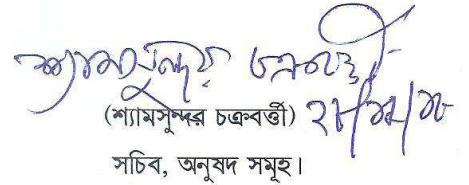 শ্যামসুন্দর চক্রবর্ত্তী
(শ্যামসুন্দর চক্রবর্ত্তী)
সচিব, অনুষদ সমূহ।